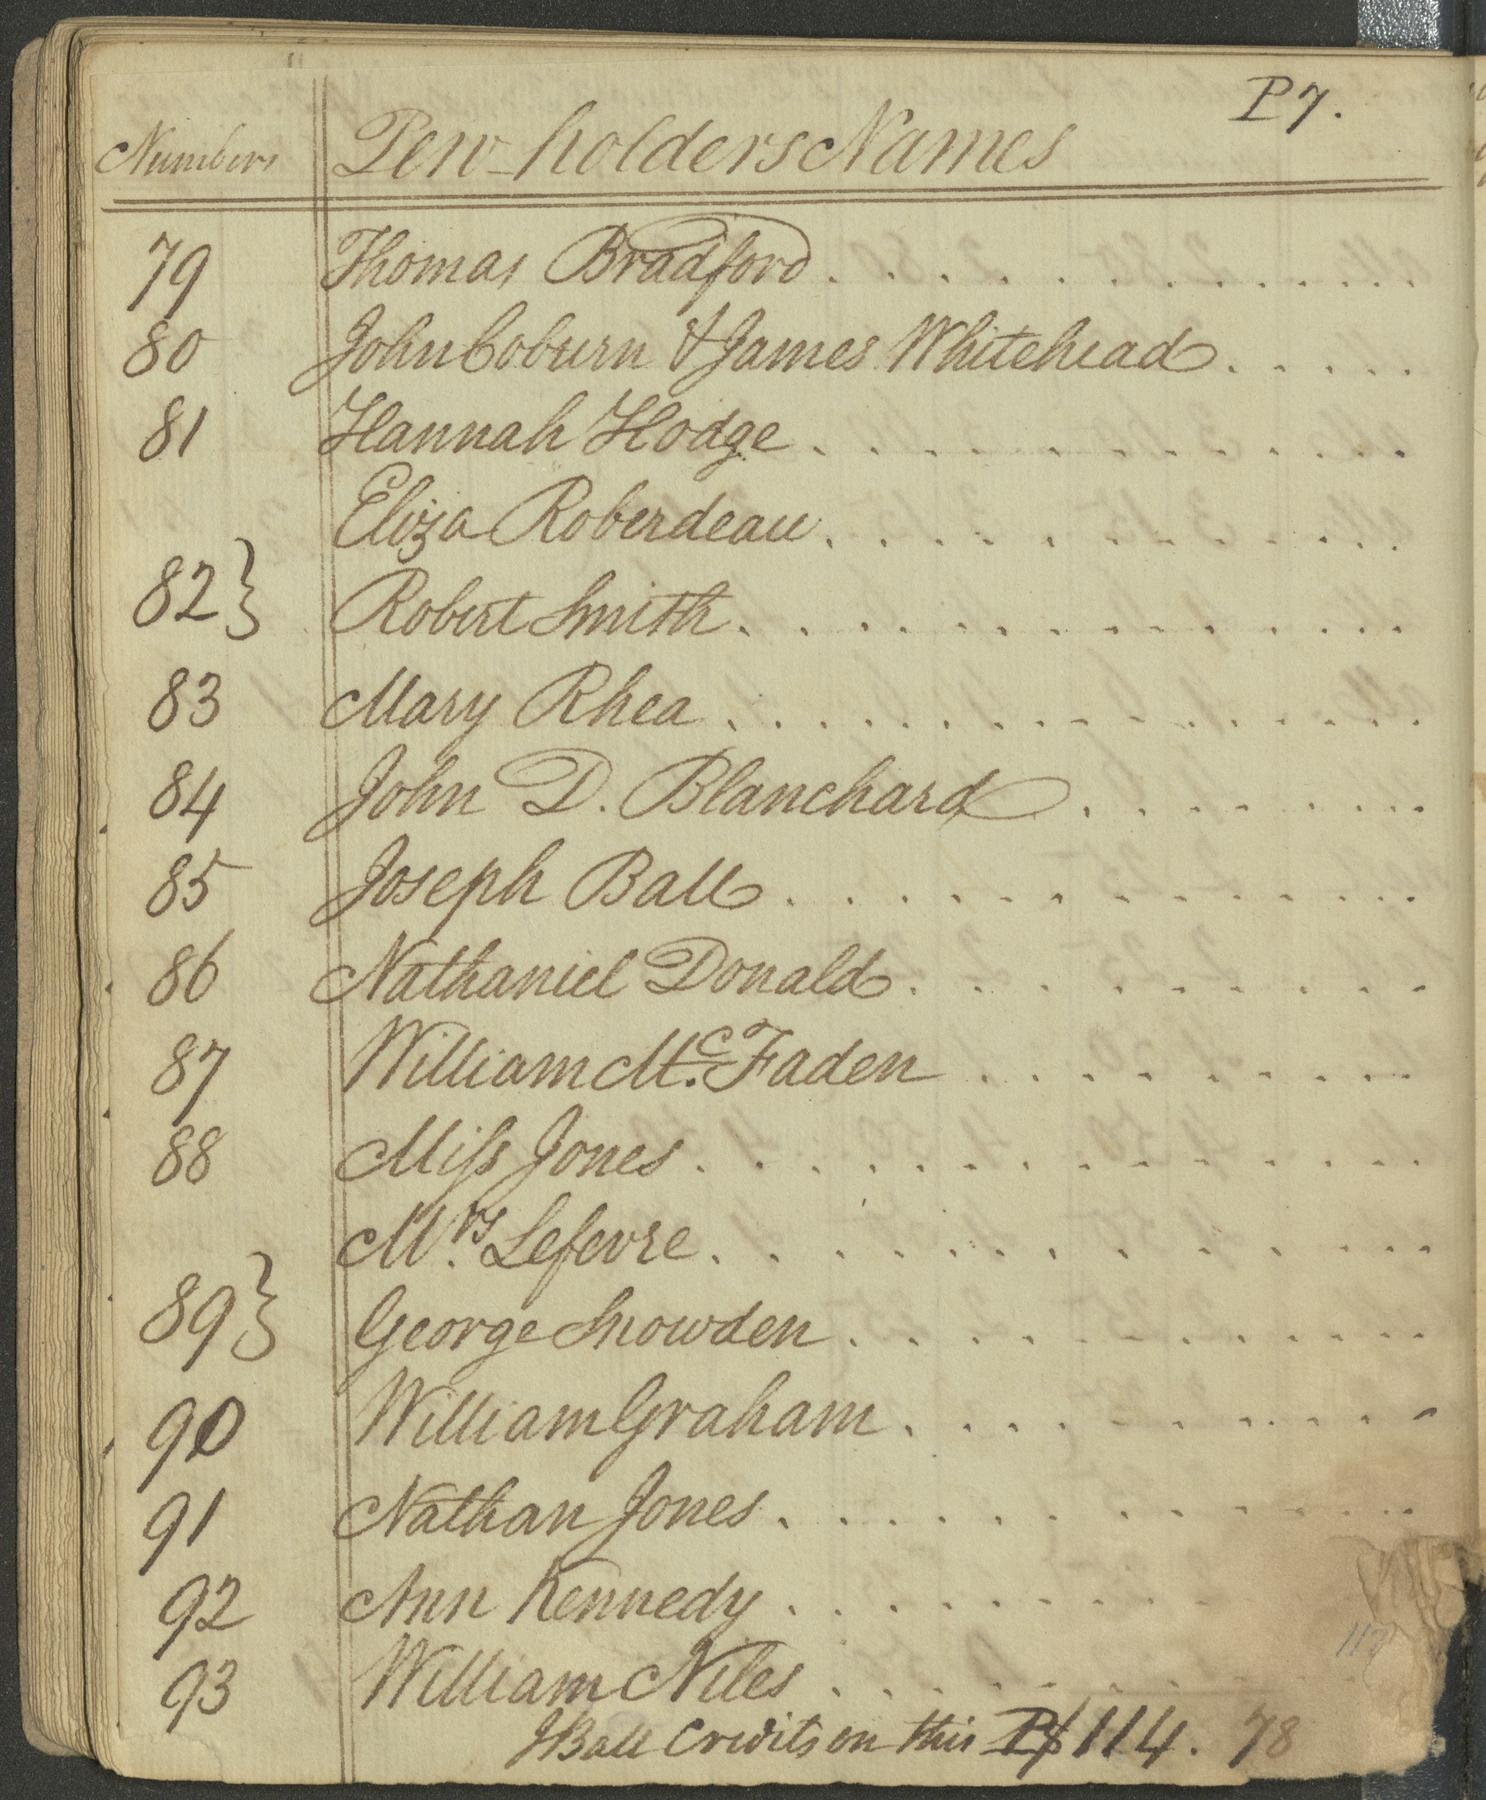 P 7.
Numbers Pew-holders Names
79 Thomas Bradford
80 John Coburn & James Whitehead
81 Hannah Hodge
Eliza Roberdeau
82} Robert Smith
83 Mary Rhea
84 John D. Blanchard
85 Joseph Ball
86 Nathaniel Donald
87 William Mc. Faden
88 Miſs Jones
Mrs. Lefevre
89} George Snowden
90 William Graham
91 Nathan Jones
92 Ann Kennedy
93 William Niles
JBall Credits on this P $114. 78